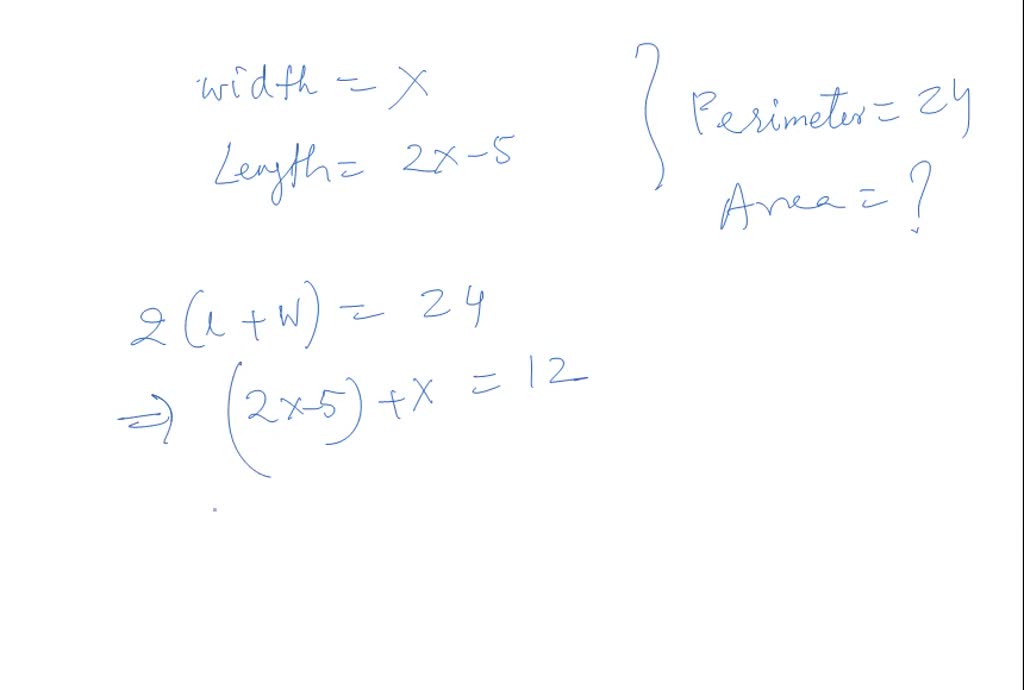 width = x
Length = 2x-5
Perimeter = 24
Area = ?
2(l+w) = 24
⇒ (2x-5)+x = 12